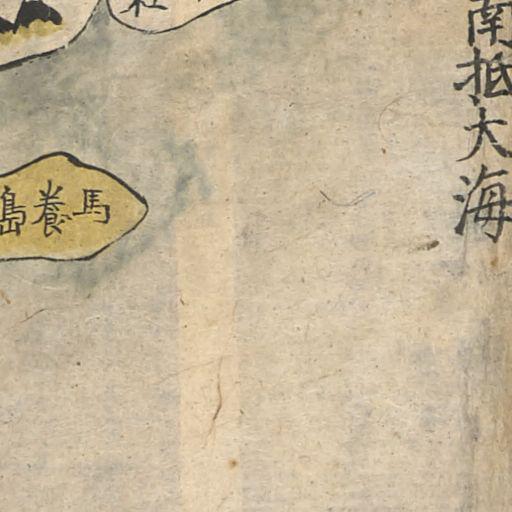 南抵大海
馬養島